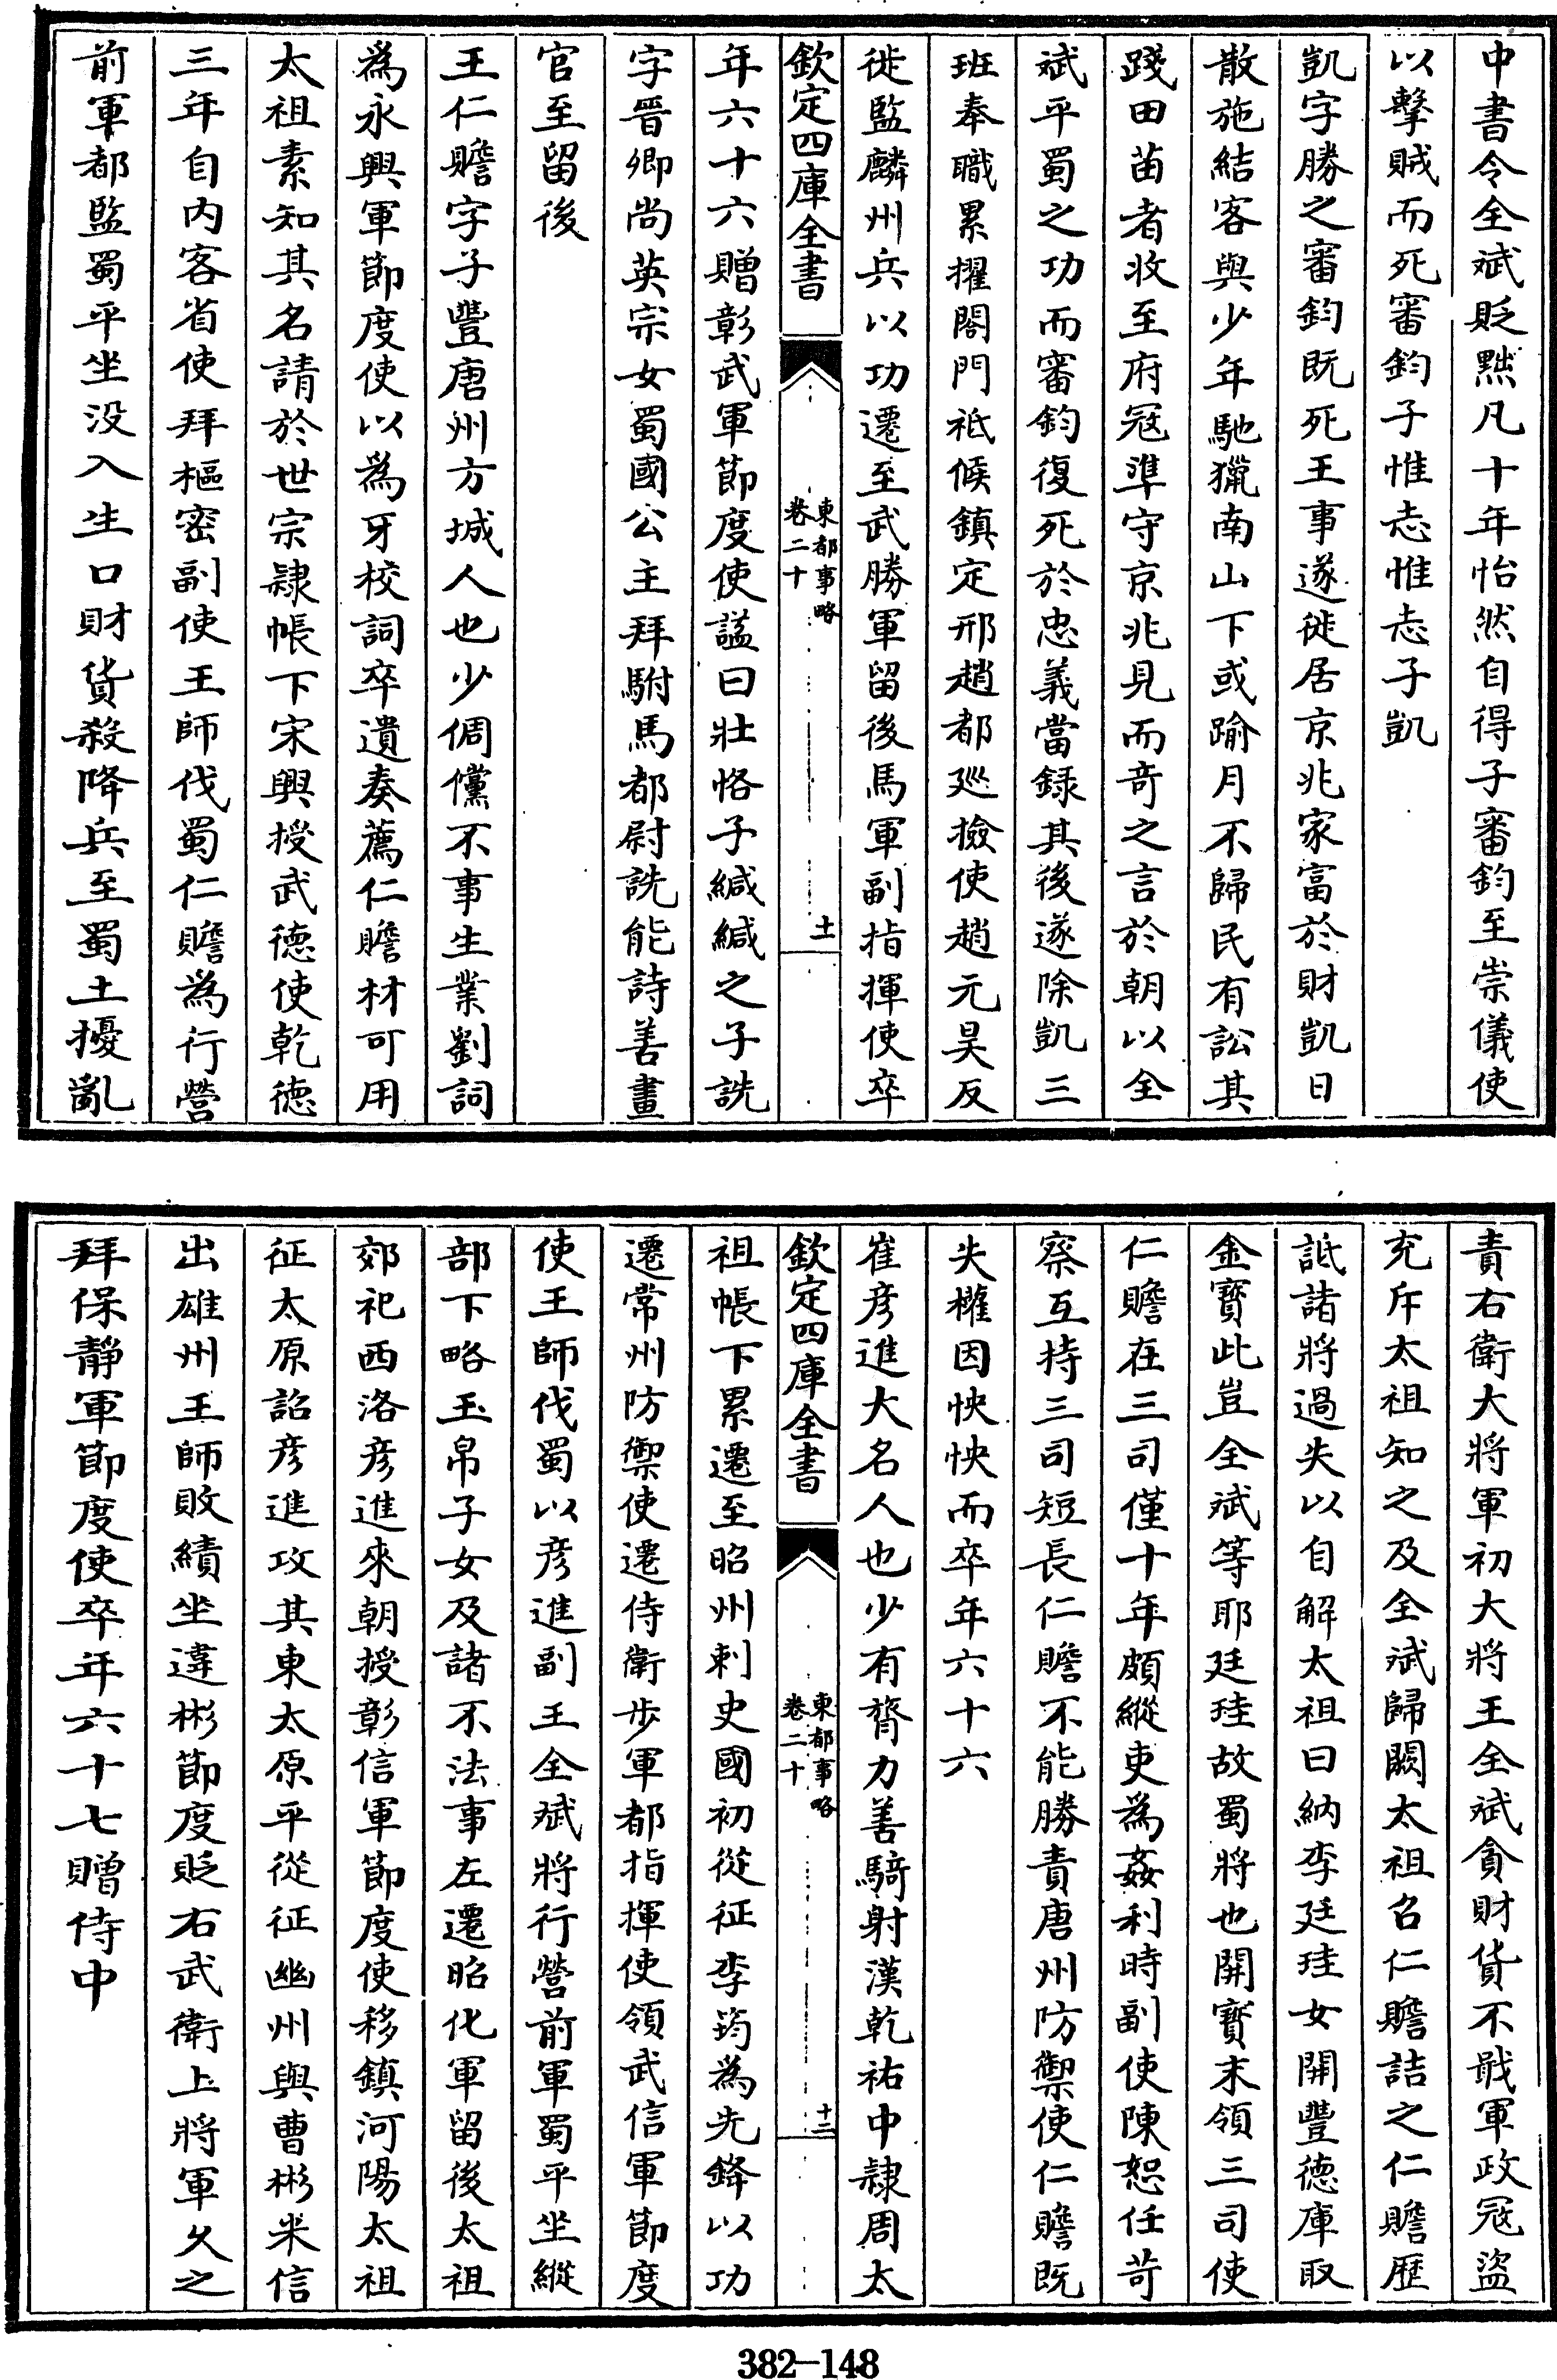 中書令全斌貶黜凡十年怡然自得子審鈞至崇儀使
以擊賊而死審鈞子惟忠惟忠子凱
凱字勝之審鈞既死王事遂徙居京兆家富於財凱日
散施結客與少年馳獵南山下或踰月不歸民有訟其
踐田苗者收至府冦準守京兆見而奇之言於朝以全
斌平蜀之功而審鈞復死於忠義當録其後遂除凱三
班奉職累擢閤門祗候鎮定邢趙都廵撿使趙元昊反
徙監麟州兵以功遷至武勝軍留後馬軍副指揮使卒
欽定四庫全書
東都事略
卷二十
十一
年六十六贈彰武軍節度使諡曰壯恪子緘緘之子詵
字晉卿尚英宗女蜀國公主拜駙馬都尉詵能詩善畫
官至留後
王仁贍字子豐唐州方城人也少倜儻不事生業劉詞
為永興軍節度使以為牙校詞卒遺奏薦仁贍材可用
太祖素知其名請於世宗隸帳下宋興授武德使乾德
三年自内客省使拜樞密副使王師伐蜀仁贍為行營
前軍都監蜀平坐没入生口財貨殺降兵至蜀土擾亂
責右衛大將軍初大將王全斌貪財貨不戢軍政冦盜
充斥太祖知之及全斌歸闕太祖召仁贍詰之仁贍歴
詆諸將過失以自解太祖曰納李廷珪女開豐德庫取
金寳此豈全斌等耶廷珪故蜀將也開寳末領三司使
仁贍在三司僅十年頗縱吏為姦利時副使陳恕任苛
察互持三司短長仁贍不能勝責唐州防禦使仁贍既
失權因怏怏而卒年六十六
崔彦進大名人也少有膂力善騎射漢乾祐中隸周太
欽定四庫全書
東都事略
卷二十
十二
祖帳下累遷至昭州刺史國初從征李筠為先鋒以功
遷常州防禦使遷侍衛步軍都指揮使領武信軍節度
使王師伐蜀以彦進副王全斌將行營前軍蜀平坐縱
部下略玉帛子女及諸不法事左遷昭化軍留後太祖
郊祀西洛彦進來朝授彰信軍節度使移鎮河陽太祖
征太原詔彦進攻其東太原平從征幽州與曹彬米信
出雄州王師敗績坐違彬節度貶右武衛上將軍久之
拜保靜軍節度使卒年六十七贈侍中
382-148